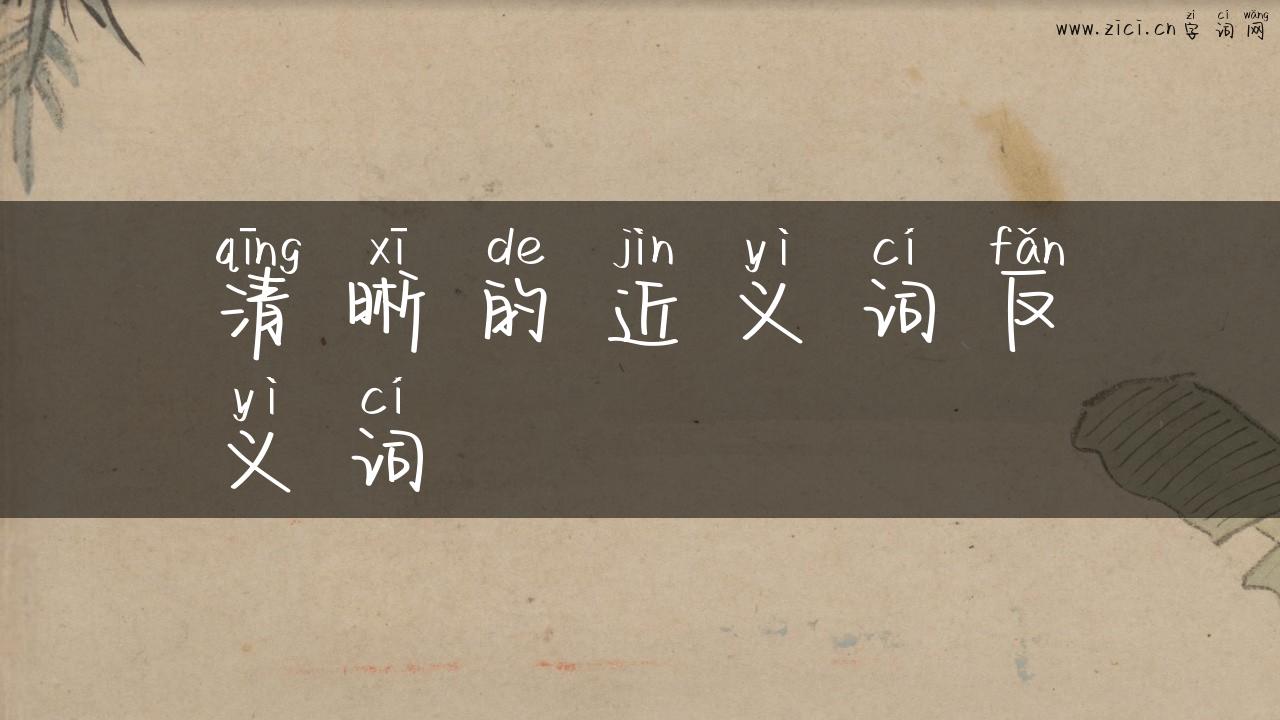 zì cí wǎng
www.zici.cn 字词网
qīng xī de jìn yì cí fǎn
清晰的近义词反
yì cí
义词